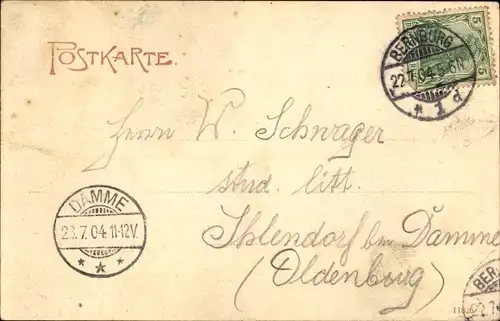 POSTKARTE.
BERNBURG
22.7.04.
* 1 d
5
5
Herrn W. Schwager
stud. litt.
DAMME
23.7.04.11-12V.
* * *
Ihlendorf bei Damme
(Oldenburg)
BER
22.7